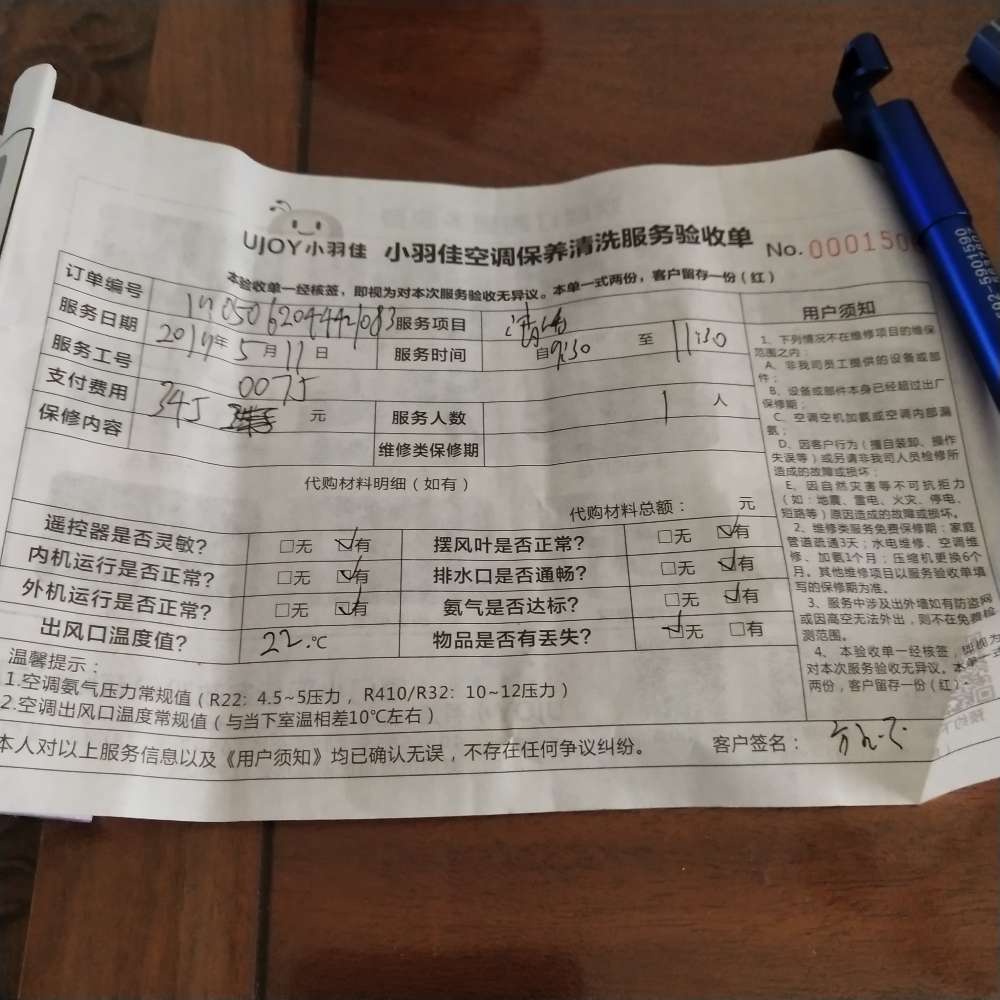 UJOY小羽佳 小羽佳空调保养清洗服务验收单 No. 000150
本验收单一经核签，即视为对本次服务验收无异议。本单一式两份，客户留存一份（红）
订单编号 服务项目 清洗
服务日期 2019年5月11日 服务时间 自9:30 至 11:30
服务工号 0075
支付费用 345 元 服务人数 1 人
保修内容 维修类保修期
代购材料明细（如有）
代购材料总额： 元
遥控器是否灵敏？ □无 ☑有 摆风叶是否正常？ □无 ☑有
内机运行是否正常？ □无 ☑有 排水口是否通畅？ □无 ☑有
外机运行是否正常？ □无 ☑有 氨气是否达标？ □无 ☑有
出风口温度值？ 22.℃ 物品是否有丢失？ ☑无 □有
温馨提示：
1.空调氨气压力常规值（R22：4.5~5压力，R410/R32：10~12压力）
2.空调出风口温度常规值（与当下室温相差10℃左右）
本人对以上服务信息以及《用户须知》均已确认无误，不存在任何争议纠纷。 客户签名：
用户须知
1、下列情况不在维修项目的维保
范围之内：
A、非我司员工提供的设备或部
件；
B、设备或部件本身已经超过出厂
保修期；
C、空调空机加氨或空调内部漏
氨；
D、因客户行为（擅自装卸、操作
失误等）或另请非我司人员检修所
造成的故障或损坏；
E、因自然灾害等不可抗拒力
（如：地震、雷电、火灾、停电、
短路等）原因造成的故障或损坏。
2、维修类服务免费保修期：家庭
管道疏通3天；水电维修、空调维
修、加氨1个月；压缩机更换6个
月。其他维修项目以服务验收单填
写的保修期为准。
3、服务中涉及出外墙如有防盗网
或因高空无法外出，则不在免费检
测范围。
4、本验收单一经核签，
对本次服务验收无异议。本单一式
两份，客户留存一份（红）。